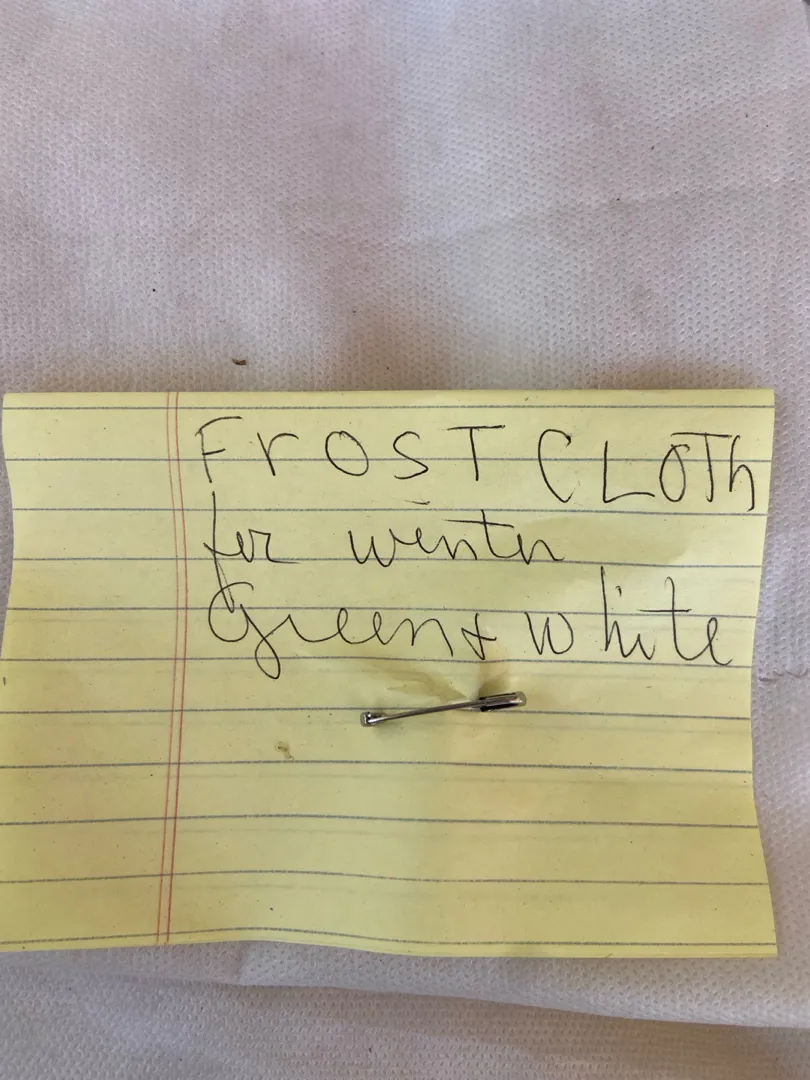 FrOST CLOTh
for winter
Green & white